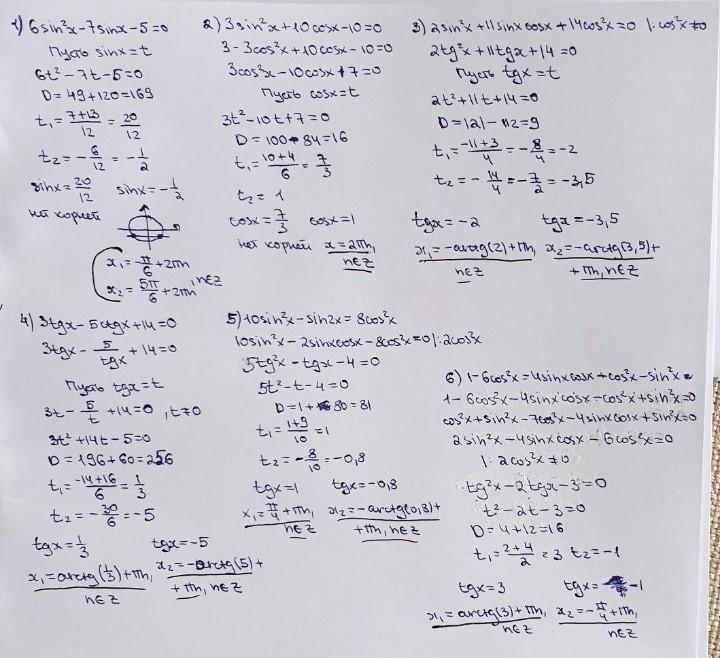 1) 6sin²x-7sinx-5=0
Пусть sinx=t
6t²-7t-5=0
D=49+120=169
t₁=(7+13)/12=20/12
t₂=-6/12=-1/2
sinx=20/12 sinx=-1/2
нет корней
x₁=-π/6+2πn
x₂=5π/6+2πn, n∈Z
2) 3sin²x+10cosx-10=0
3-3cos²x+10cosx-10=0
3cos²x-10cosx+7=0
Пусть cosx=t
3t²-10t+7=0
D=100-84=16
t₁=(10+4)/6=7/3
t₂=1
cosx=7/3 cosx=1
нет корней x=2πn,
n∈Z
3) 2sin²x+11sinxcosx+14cos²x=0 |:cos²x≠0
2tg²x+11tgx+14=0
Пусть tgx=t
2t²+11t+14=0
D=121-112=9
t₁=(-11+3)/4=-8/4=-2
t₂=-14/4=-7/2=-3,5
tgx=-2 tgx=-3,5
x₁=-arctg(2)+πn, x₂=-arctg(3,5)+
n∈Z +πn, n∈Z
4) 3tgx-5ctgx+14=0
3tgx-5/tgx+14=0
Пусть tgx=t
3t-5/t+14=0, t≠0
3t²+14t-5=0
D=196+60=256
t₁=(-14+16)/6=1/3
t₂=-30/6=-5
tgx=1/3 tgx=-5
x₁=arctg(1/3)+πn, x₂=-arctg(5)+
n∈Z +πn, n∈Z
5) 10sin²x-sin2x=8cos²x
10sin²x-2sinxcosx-8cos²x=0|:2cos²x
5tg²x-tgx-4=0
5t²-t-4=0
D=1+80=81
t₁=(1+9)/10=1
t₂=-8/10=-0,8
tgx=1 tgx=-0,8
x₁=π/4+πn, x₂=-arctg(0,8)+
n∈Z +πn, n∈Z
6) 1-6cos²x=4sinxcosx+cos²x-sin²x
1-6cos²x-4sinxcosx-cos²x+sin²x=0
cos²x+sin²x-7cos²x-4sinxcosx+sin²x=0
2sin²x-4sinxcosx-6cos²x=0
|:2cos²x≠0
tg²x-2tgx-3=0
t²-2t-3=0
D=4+12=16
t₁=(2+4)/2=3 t₂=-1
tgx=3 tgx=-1
x₁=arctg(3)+πn, x₂=-π/4+πn,
n∈Z n∈Z